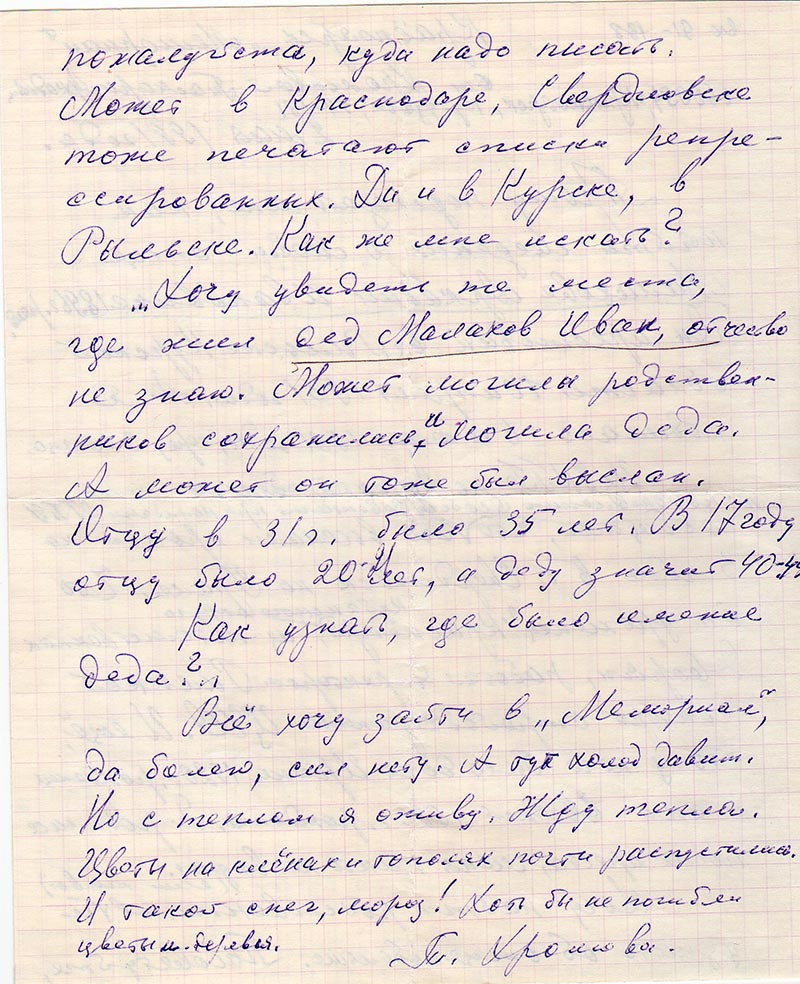 пожалуйста, куда надо писать.
Может в Краснодаре, Свердловске
тоже печатают списки репре-
ссированных. Да и в Курске, в
Рыльске. Как же мне искать?
... Хочу увидеть те места,
где жил дед Малахов Иван, отчество
не знаю. Может могила родствен-
ников сохранилась, и могила деда.
А может он тоже был выслан.
Отцу в 31 г. было 35 лет. В 17 году
отцу было 20-21 лет, а деду значит 40-44
Как узнать, где было имение
деда?..
Всё хочу зайти в „Мемориал",
да болею, сил нету. А тут холод давит.
Но с теплом я оживу. Жду тепла.
Цветы на клёнах и тополях почти распустились.
И такой снег, мороз! Хоть бы не погибли
цветы и деревья.
Т.